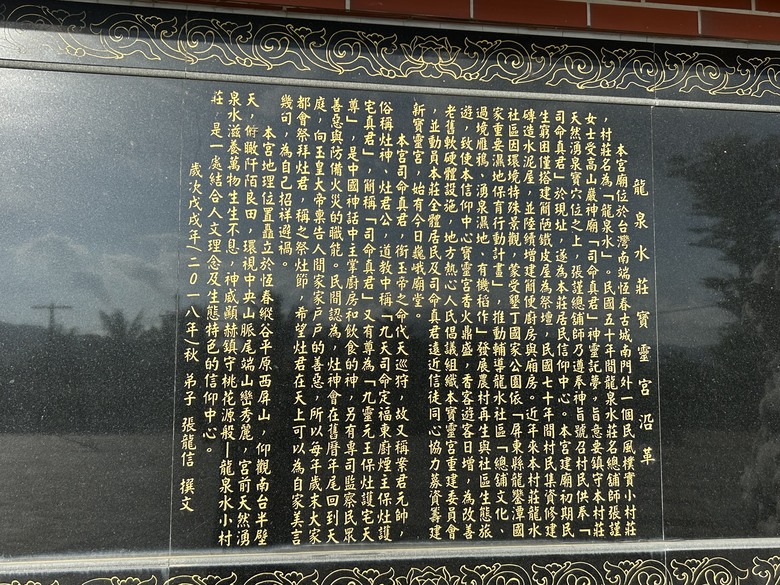 龍泉水莊寶靈宮沿革
本宮廟位於台灣南端恆春古城南門外一個民風樸實小村莊
,村莊名為「龍泉水」。民國五十年間龍泉水莊名總舖師張謹
女士受高山巖神廟「司命真君」神靈託夢。旨意要鎮守本村莊
天然湧泉寶穴位之上,張謹總舖師乃遵奉神旨號召村民供奉「
司命真君」於現址,遂為本莊居民信仰中心。本宮建廟初期民
生窮困僅搭建簡陋鐵皮屋為祭壇,民國七十年間村民集資修建
磚造水泥屋,並陸續增建簡便廚房與廂房。近年來本村莊龍水
社區因環境特殊景觀,蒙受墾丁國家公園依「屏東縣龍鑾潭國
家重要濕地保育行動計畫」,推動輔導龍水社區「總舖文化、
過境雁鴉、湧泉濕地、有機稻作」發展農村再生與社區生態旅
遊,致使本信仰中心寶靈宮香火鼎盛,香客遊客日增,為改善
老舊軟硬體設施,地方熱心人民倡議組織本寶靈宮重建委員會
,並動員本莊全體居民及司命真君遠近信徒同心協力募資籌建
新寶靈宮,始有今日巍峨廟堂。
本宮司命真君,銜玉帝之命代天巡狩,故又稱案君元帥,
俗稱灶神、灶君公,道教中稱「九天司命定福東廚煙主保灶護
宅真君」,簡稱「司命真君」又有尊為「九靈元王保灶護宅天
尊」,是中國神話中主掌廚房和飲食的神,另有專司監察民眾
善惡與防備火災的職能。民間認為,灶神會在舊曆年尾回到天
庭,向玉皇大帝稟告人間家家戶戶的善惡,所以每年歲末大家
都會祭拜灶君,稱之祭灶節,希望灶君在天上可以為自家美言
幾句,為自己招祥避禍。
本宮地理位置矗立於恆春縱谷平原西屏山,仰觀南台半壁
天,俯瞰阡陌良田,環視中央山脈尾端山巒秀麗,宮前天然湧
泉水滋養萬物生生不息,神威顯赫鎮守桃花源般—龍泉水小村
莊,是一處結合人文理念及生態特色的信仰中心。
歲次戊戌年(二0一八年)秋 弟子 張龍信 撰文